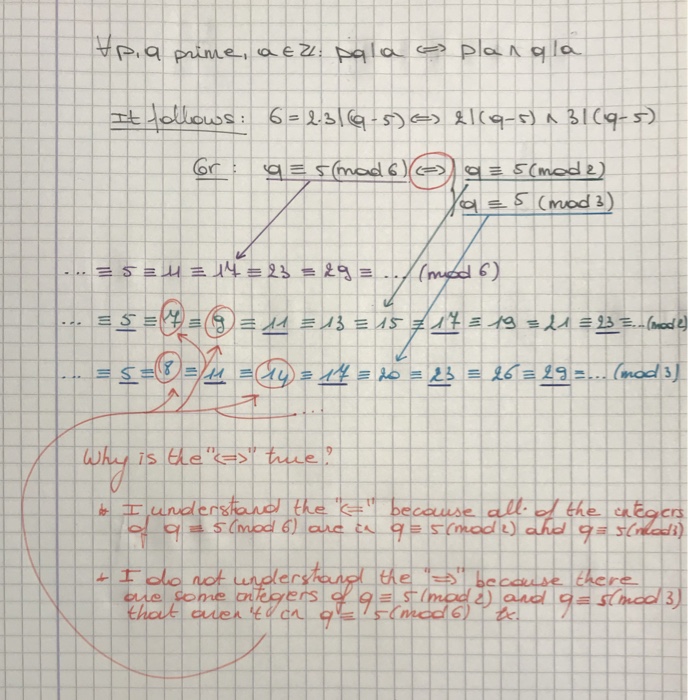 ∀p,q prime, a∈ℤ: pq|a ⟺ p|a ∧ q|a
It follows: 6=2·3|(q-5) ⟺ 2|(q-5) ∧ 3|(q-5)
Or: q ≡ 5 (mod 6) ⟺ q ≡ 5 (mod 2)
q ≡ 5 (mod 3)
... ≡ 5 ≡ 11 ≡ 17 ≡ 23 ≡ 29 ≡ ... (mod 6)
... ≡ 5 ≡ 7 ≡ 9 ≡ 11 ≡ 13 ≡ 15 ≡ 17 ≡ 19 ≡ 21 ≡ 23 ≡ ... (mod 2)
... ≡ 5 ≡ 8 ≡ 11 ≡ 14 ≡ 17 ≡ 20 ≡ 23 ≡ 26 ≡ 29 ≡ ... (mod 3)
...
Why is the "<=>" true?
* I understand the "<=" because all of the integers
of q ≡ 5 (mod 6) are in q ≡ 5 (mod 2) and q ≡ 5 (mod 3)
* I do not understand the "=>" because there
are some integers of q ≡ 5 (mod 2) and q ≡ 5 (mod 3)
that aren't in q ≡ 5 (mod 6)